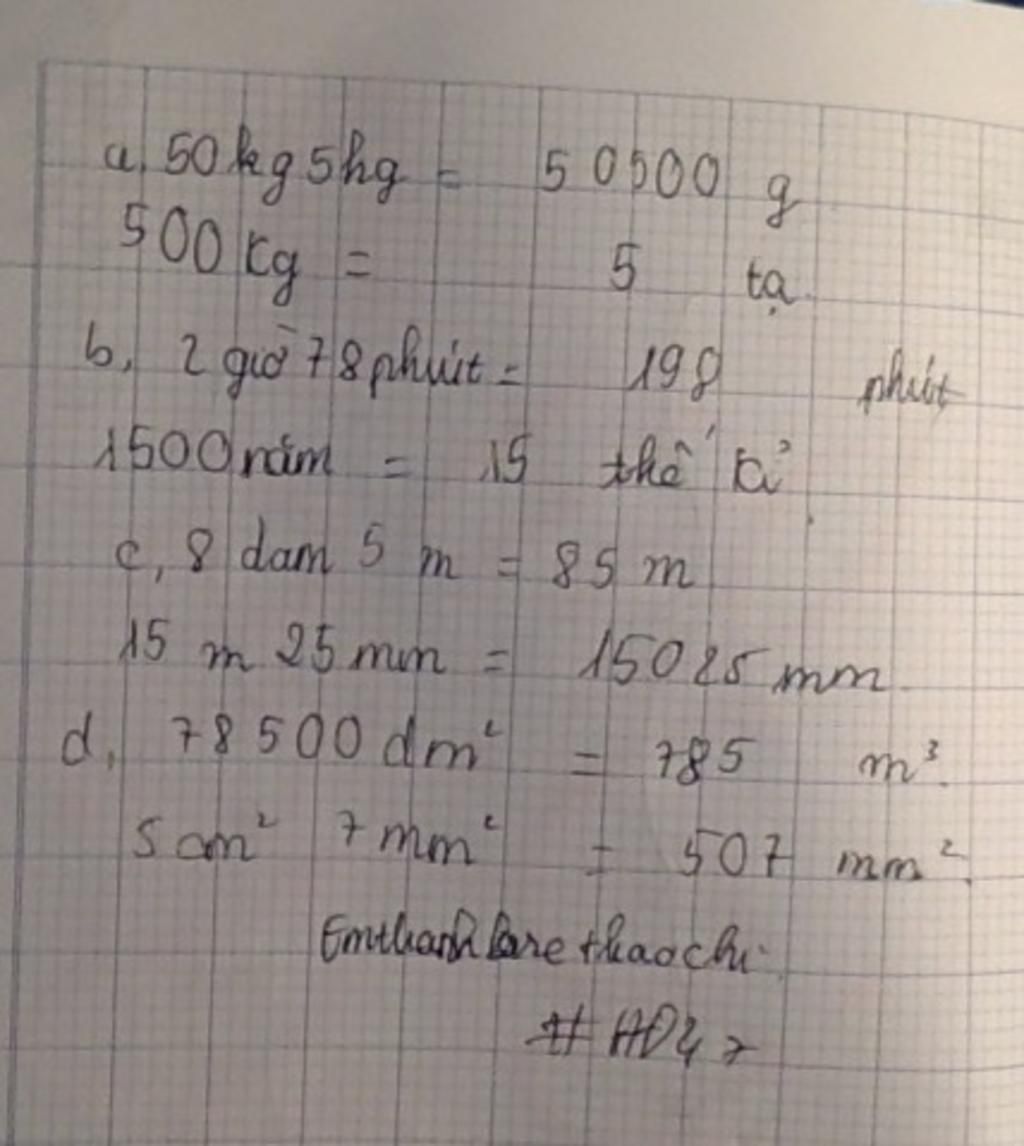 a, 50kg 5hg = 50500 g
500 kg = 5 tạ
b, 2 giờ 78 phút = 198 phút
1500 năm = 15 thế kỉ
c, 8 dam 5 m = 85 m
15 m 25 mm = 15025 mm
d, 78500 dm² = 785 m³
5 cm² 7 mm² = 507 mm²
# HD47